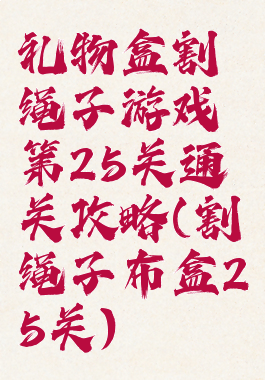 礼物盒割
绳子游戏
第25关通
关攻略(割
绳子布盒2
5关)